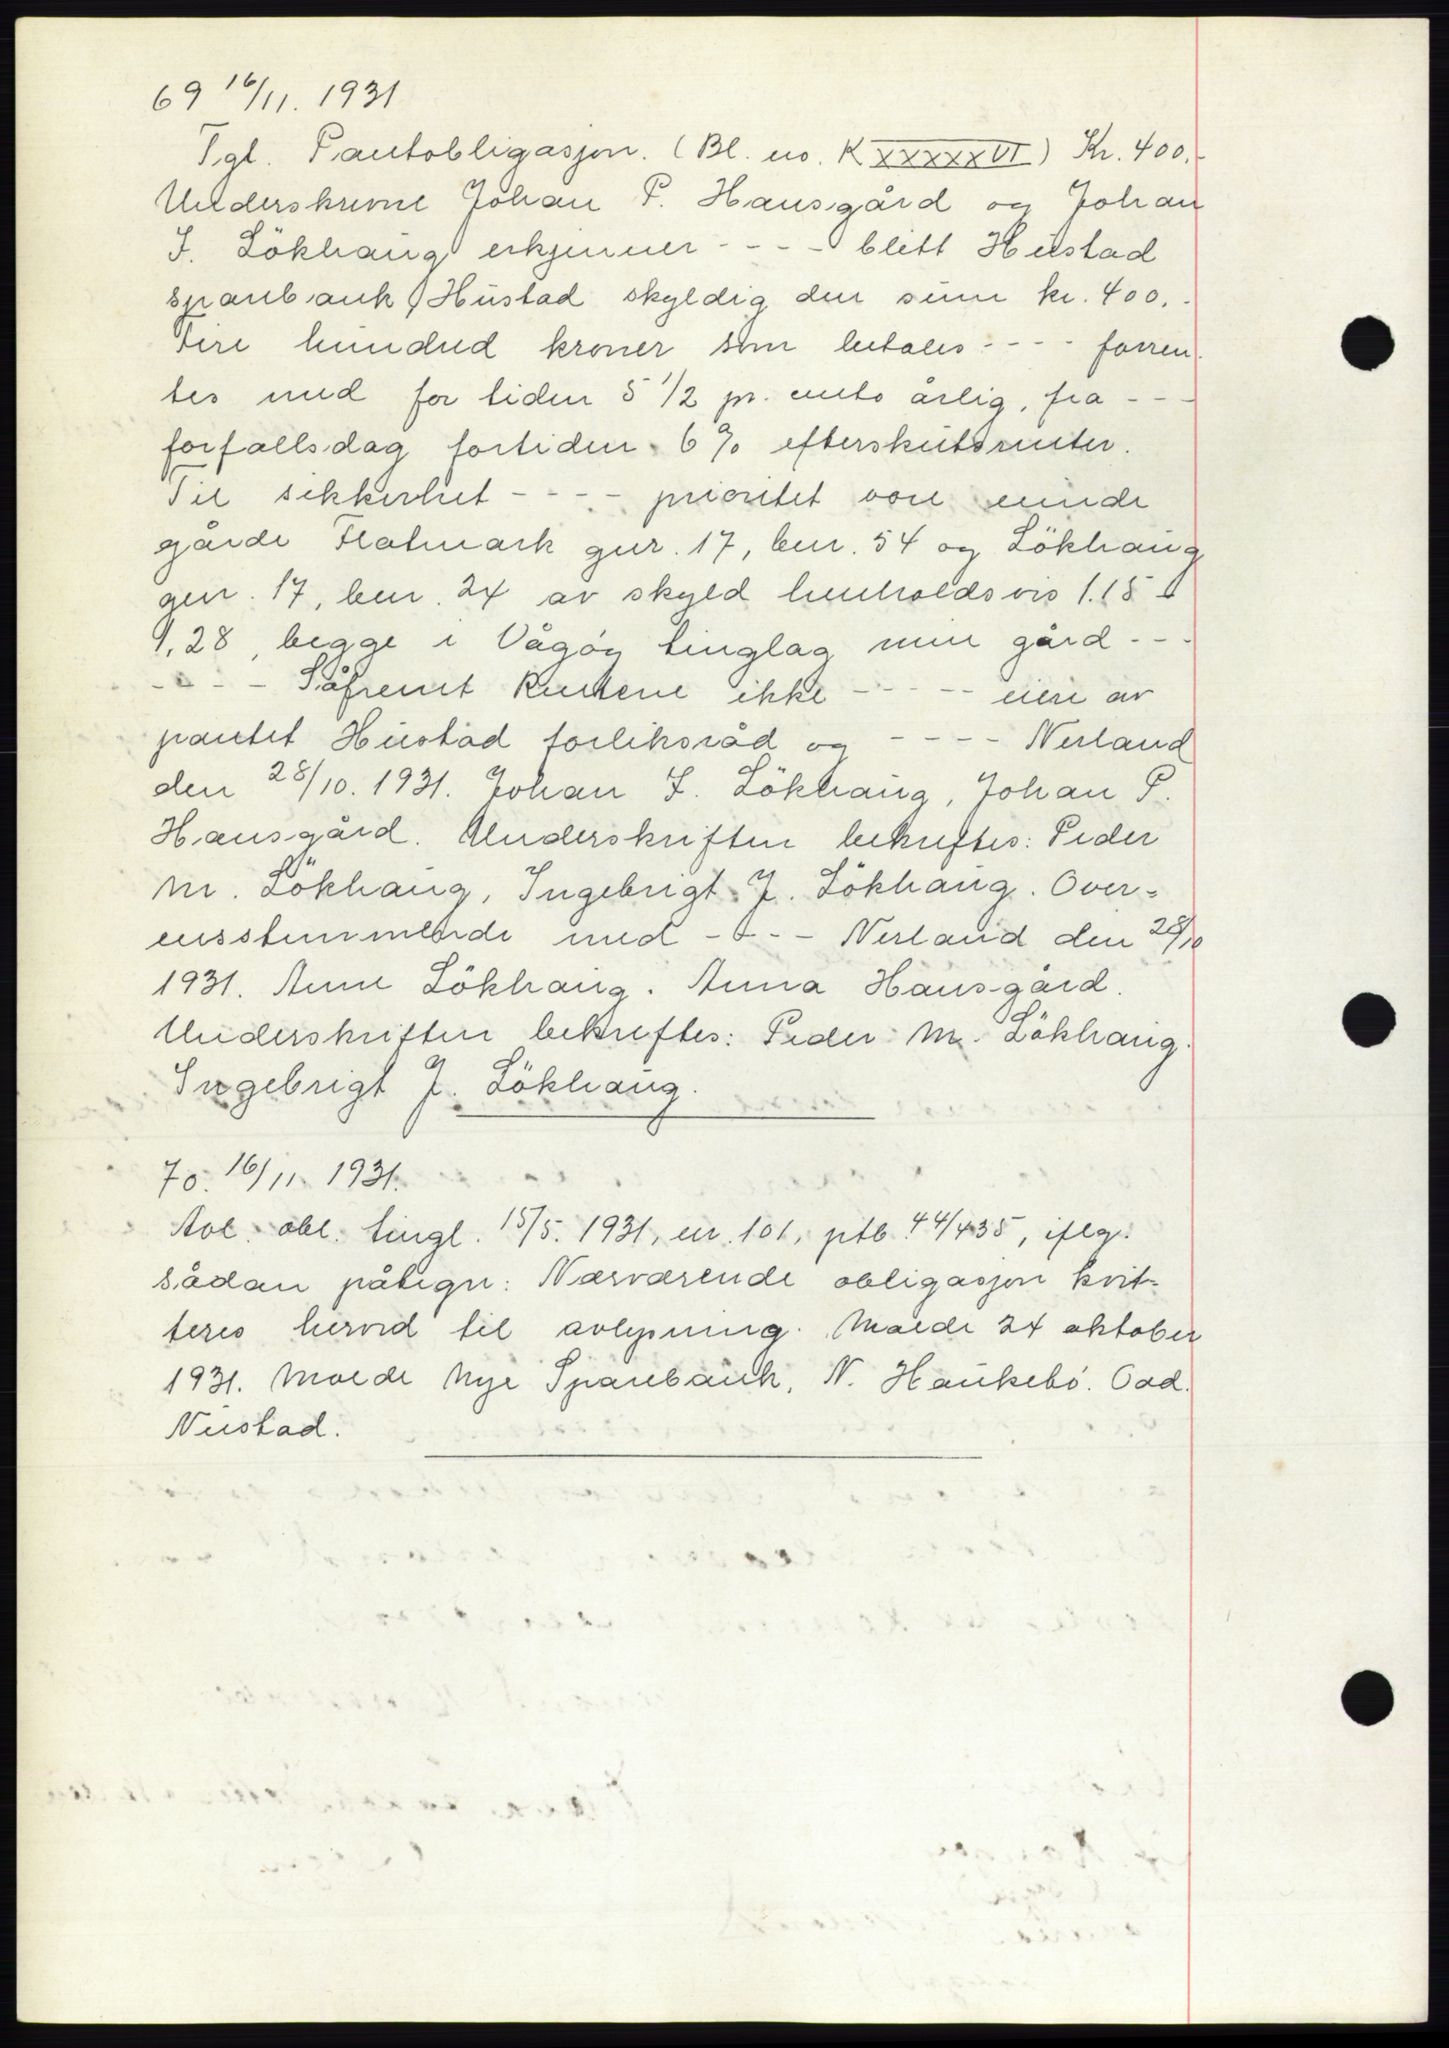 69 16/11. 1931
Tgl. Pantobligasjon. (Bl. no. K XXXXXVI) Kr. 400.-
Underskrevne Johan P. Hansgård og Johan
I. Lökhaug erkjenner - - - - blitt Hustad
sparebank, Hustad skyldig den sum kr. 400.-
Fire hundred kroner som betales - - - - forren
tes med for tiden 5 1/2 pr. cents årlig, fra - - -
forfallsdag fortiden 6% efterskutsrenter.
Til sikkerhet - - - - prioritet vore eiende
gårde Flatmark gnr. 17, bnr. 54 og Lökhaug
gnr. 17, bnr. 24 av skyld henholdsvis 1.15 &
1,28, begge i Vågöy tinglag min gård - - -
- - - - Såfremt rentene ikke - - - - - eiere av
pantet Hustad forliksråd og - - - - Nerland
den 28/10. 1931. Johan I. Lökhaug, Johan P.
Hansgård. Underskriften bekreftes: Peder
M. Lökhaug, Ingebrigt J. Lökhaug. Over-
ensstemmende med - - - - Nerland den 28/10
1931. Anne Lökhaug. Anna Hansgård.
Underskriften bekreftes: Peder M. Lökhaug.
Ingebrigt J. Lökhaug.
70. 16/11. 1931.
Avl. obl. tingl. 15/5. 1931, nr. 101, ptb. 44/435, iflg.
sådan påtegn: Nærværende obligasjon kvit-
teres herved til avlysning. Molde 24 oktober
1931. Molde Nye Sparebank, N. Haukebö. Odd.
Nustad.